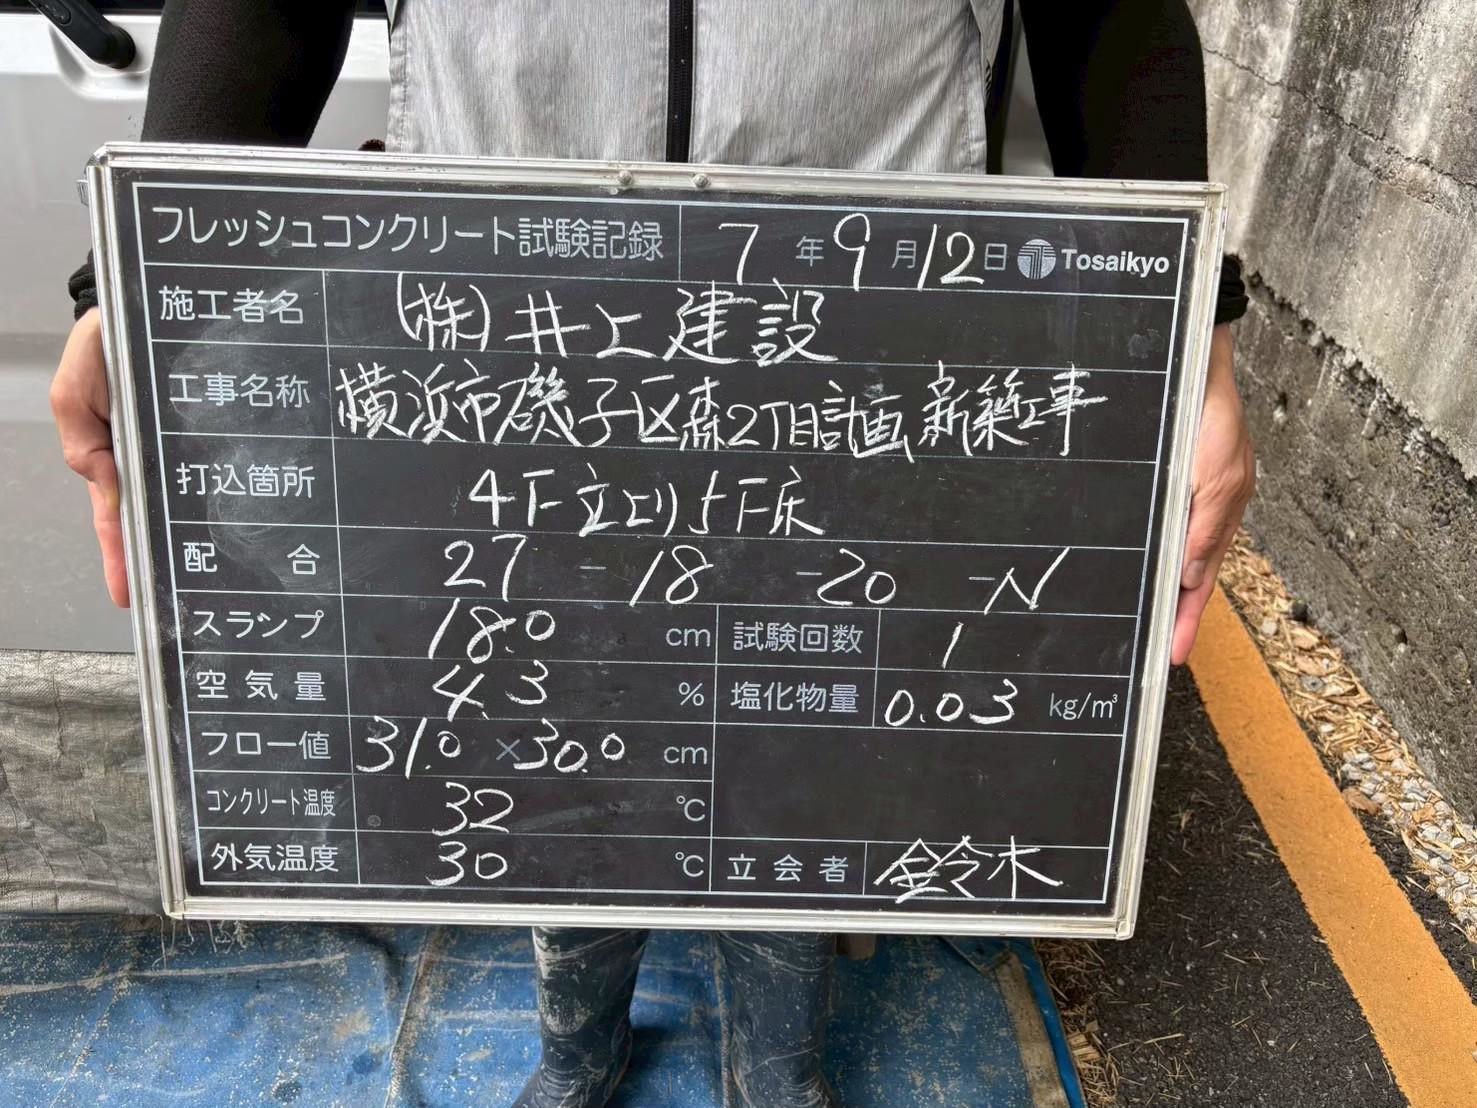 フレッシュコンクリート試験記録 7年9月12日 Tosaikyo
施工者名 (株)井上建設
工事名称 横浜市磯子区森2丁目計画新築工事
打込箇所 4F立上り5F床
配合 27-18-20-N
スランプ 18.0 cm 試験回数 1
空気量 4.3 % 塩化物量 0.03 kg/m³
フロー値 31.0×30.0 cm
コンクリート温度 32 ℃
外気温度 30 ℃ 立会者 鈴木